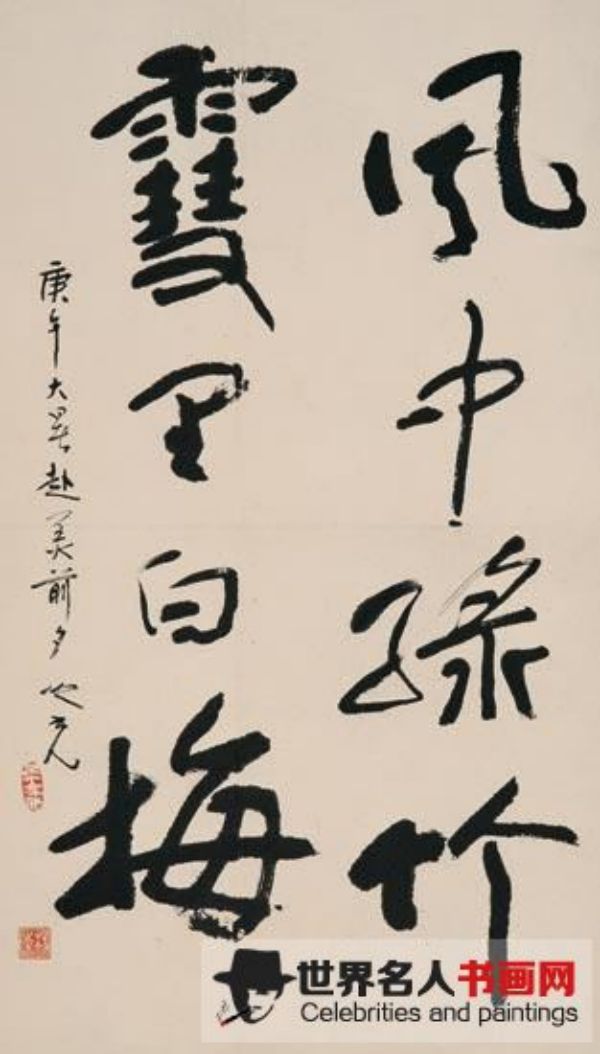 風中綠竹
雪里白梅
庚午大暑赴美前夕
世界名人书画网
Celebrities and paintings